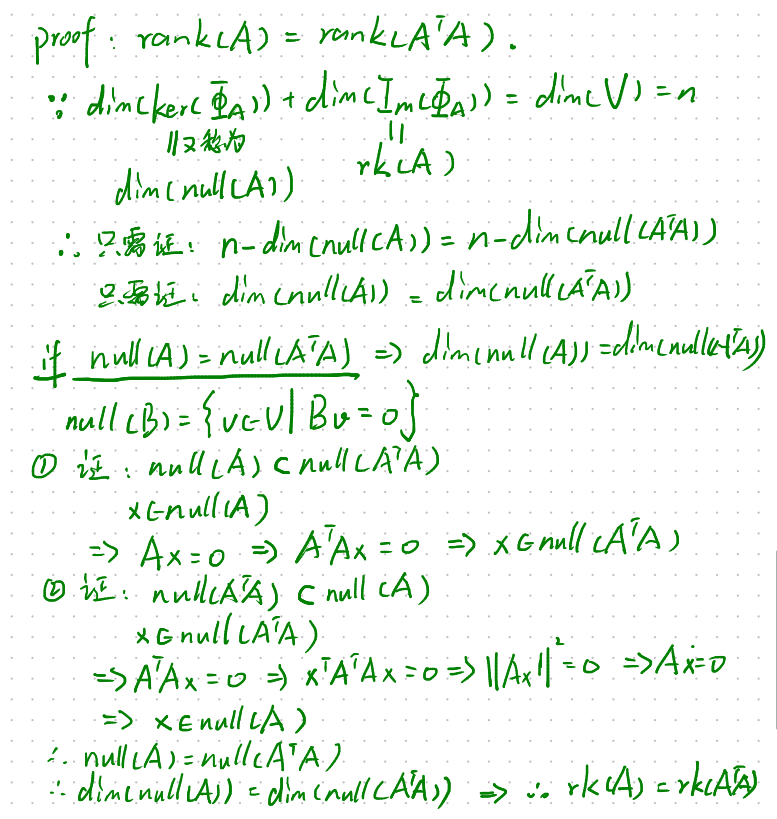 proof : rank(A) = rank(AᵀA) .
∵ dim(ker(Φ_A)) + dim(Im(Φ_A)) = dim(V) = n
|| 又称为 ||
dim(null(A)) rk(A)
∴ 只需证: n-dim(null(A)) = n-dim(null(AᵀA))
只需证: dim(null(A)) = dim(null(AᵀA))
if null(A) = null(AᵀA) => dim(null(A)) = dim(null(AᵀA))
null(B) = {v∈V | Bv = 0}
① 证: null(A) ⊂ null(AᵀA)
x∈null(A)
=> Ax = 0 => AᵀAx = 0 => x∈null(AᵀA)
② 证: null(AᵀA) ⊂ null(A)
x∈null(AᵀA)
=> AᵀAx = 0 => xᵀAᵀAx = 0 => ||Ax||² = 0 => Ax = 0
=> x∈null(A)
∴ null(A) = null(AᵀA)
∴ dim(null(A)) = dim(null(AᵀA)) => ∴ rk(A) = rk(AᵀA)